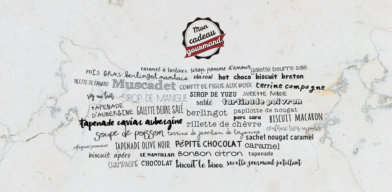 Mon
cadeau
gourmand
caramel à tartiner wraps pomme d'amour galette beurre salé
FOIS GRAS berlingot nantais verrow hot choco biscuit breton
RILLETTE DE CANARD Muscadet CONFIT DE FIGUE AUX NOIX terrine campagne
SIROP DE MANGUE SIROP DE YUZU SUPEYRE RONDE
TAPENADE sablé tartinade poivron
D'AUBERGINE GALETTE BEURRE SALÉ berlingot papillote de nougat
tapenade caviar aubergine rillette de chèvre porc caro BISCUIT MACARON
soupe de poisson terrine de jambon de bayonne
TAPENADE OLIVE NOIR PÉPITÉ CHOCOLAT sachet nougat caramel
biscuit apéro LE NANTILLAIS BONBON CITRON tapenade caramel
CAMPAGNE CHOCOLAT biscuit le bisou sucette poisson pétillant